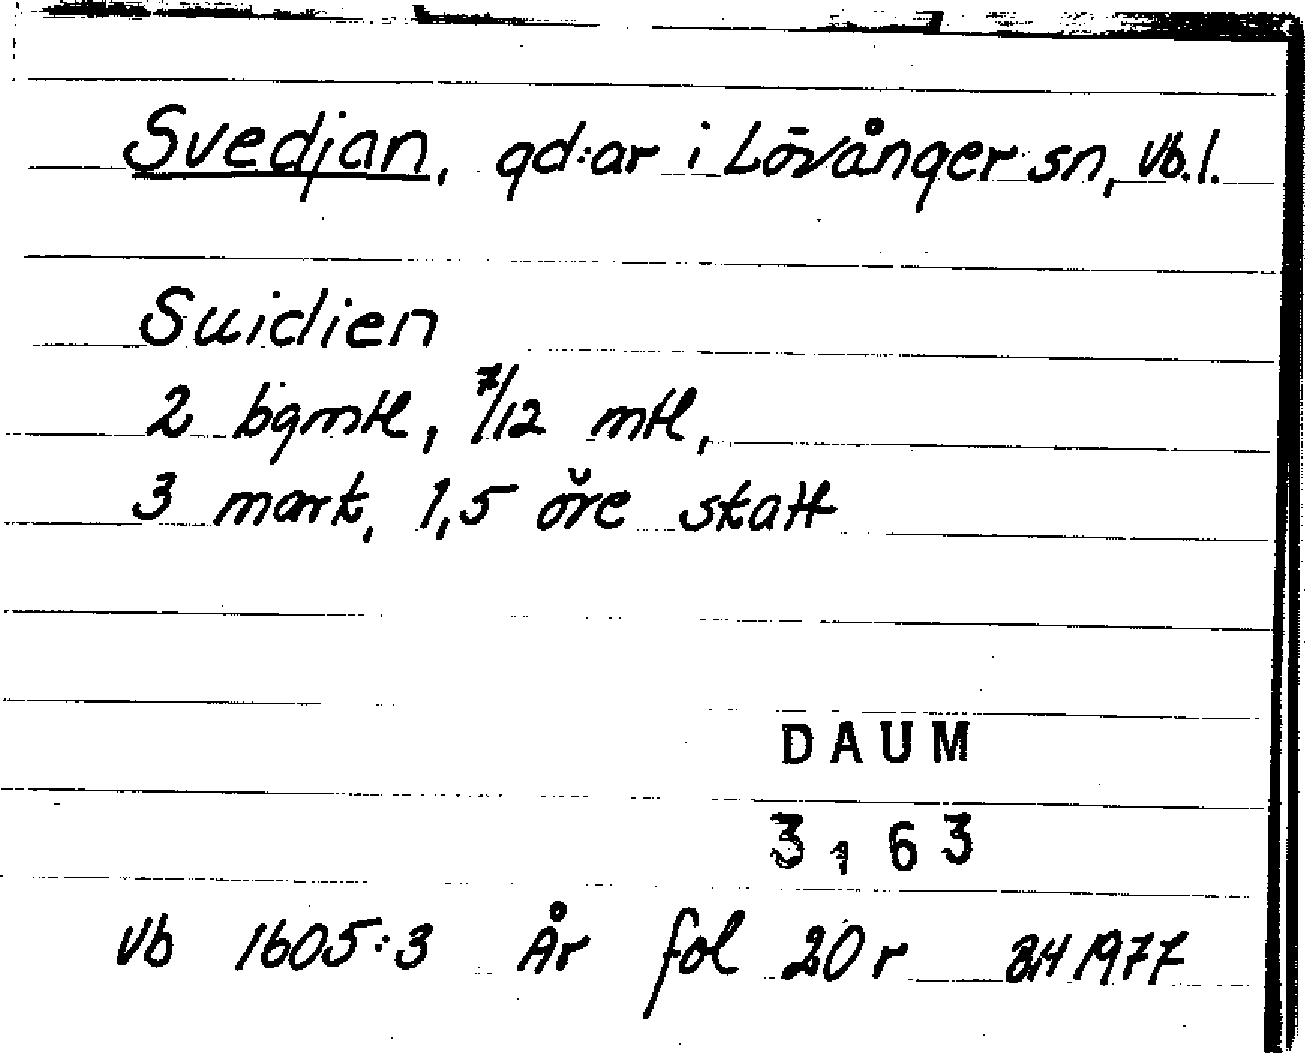 Svedjan, gd:ar i Lövånger sn, Vb.l.
Suidien
2 bgmtl, 7/12 mtl,
3 mark, 1,5 öre skatt
DAUM
3163
Vb 1605:3 År fol 20 r 1977